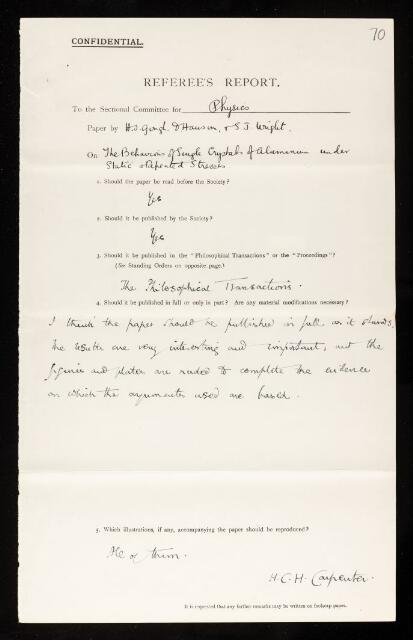 70
CONFIDENTIAL.
REFEREE'S REPORT.
To the Sectional Committee for Physics
Paper by H.J. Gough, D Hanson, & S.J. Wright.
On The Behaviour of Single Crystals of Aluminium under
Static & Repeated Stresses
1. Should the paper be read before the Society?
Yes
2. Should it be published by the Society?
Yes
3. Should it be published in the "Philosophical Transactions" or the "Proceedings"?
(See Standing Orders on opposite page.)
The Philosophical Transactions.
4. Should it be published in full or only in part? Are any material modifications necessary?
I think the paper should be published in full, as it stands.
The results are very interesting and important, and the
figures and plates are needed to complete the evidence
on which the arguments used are based.
5. Which illustrations, if any, accompanying the paper should be reproduced?
All of them.
H.C.H. Carpenter.
It is requested that any further remarks may be written on foolscap paper.